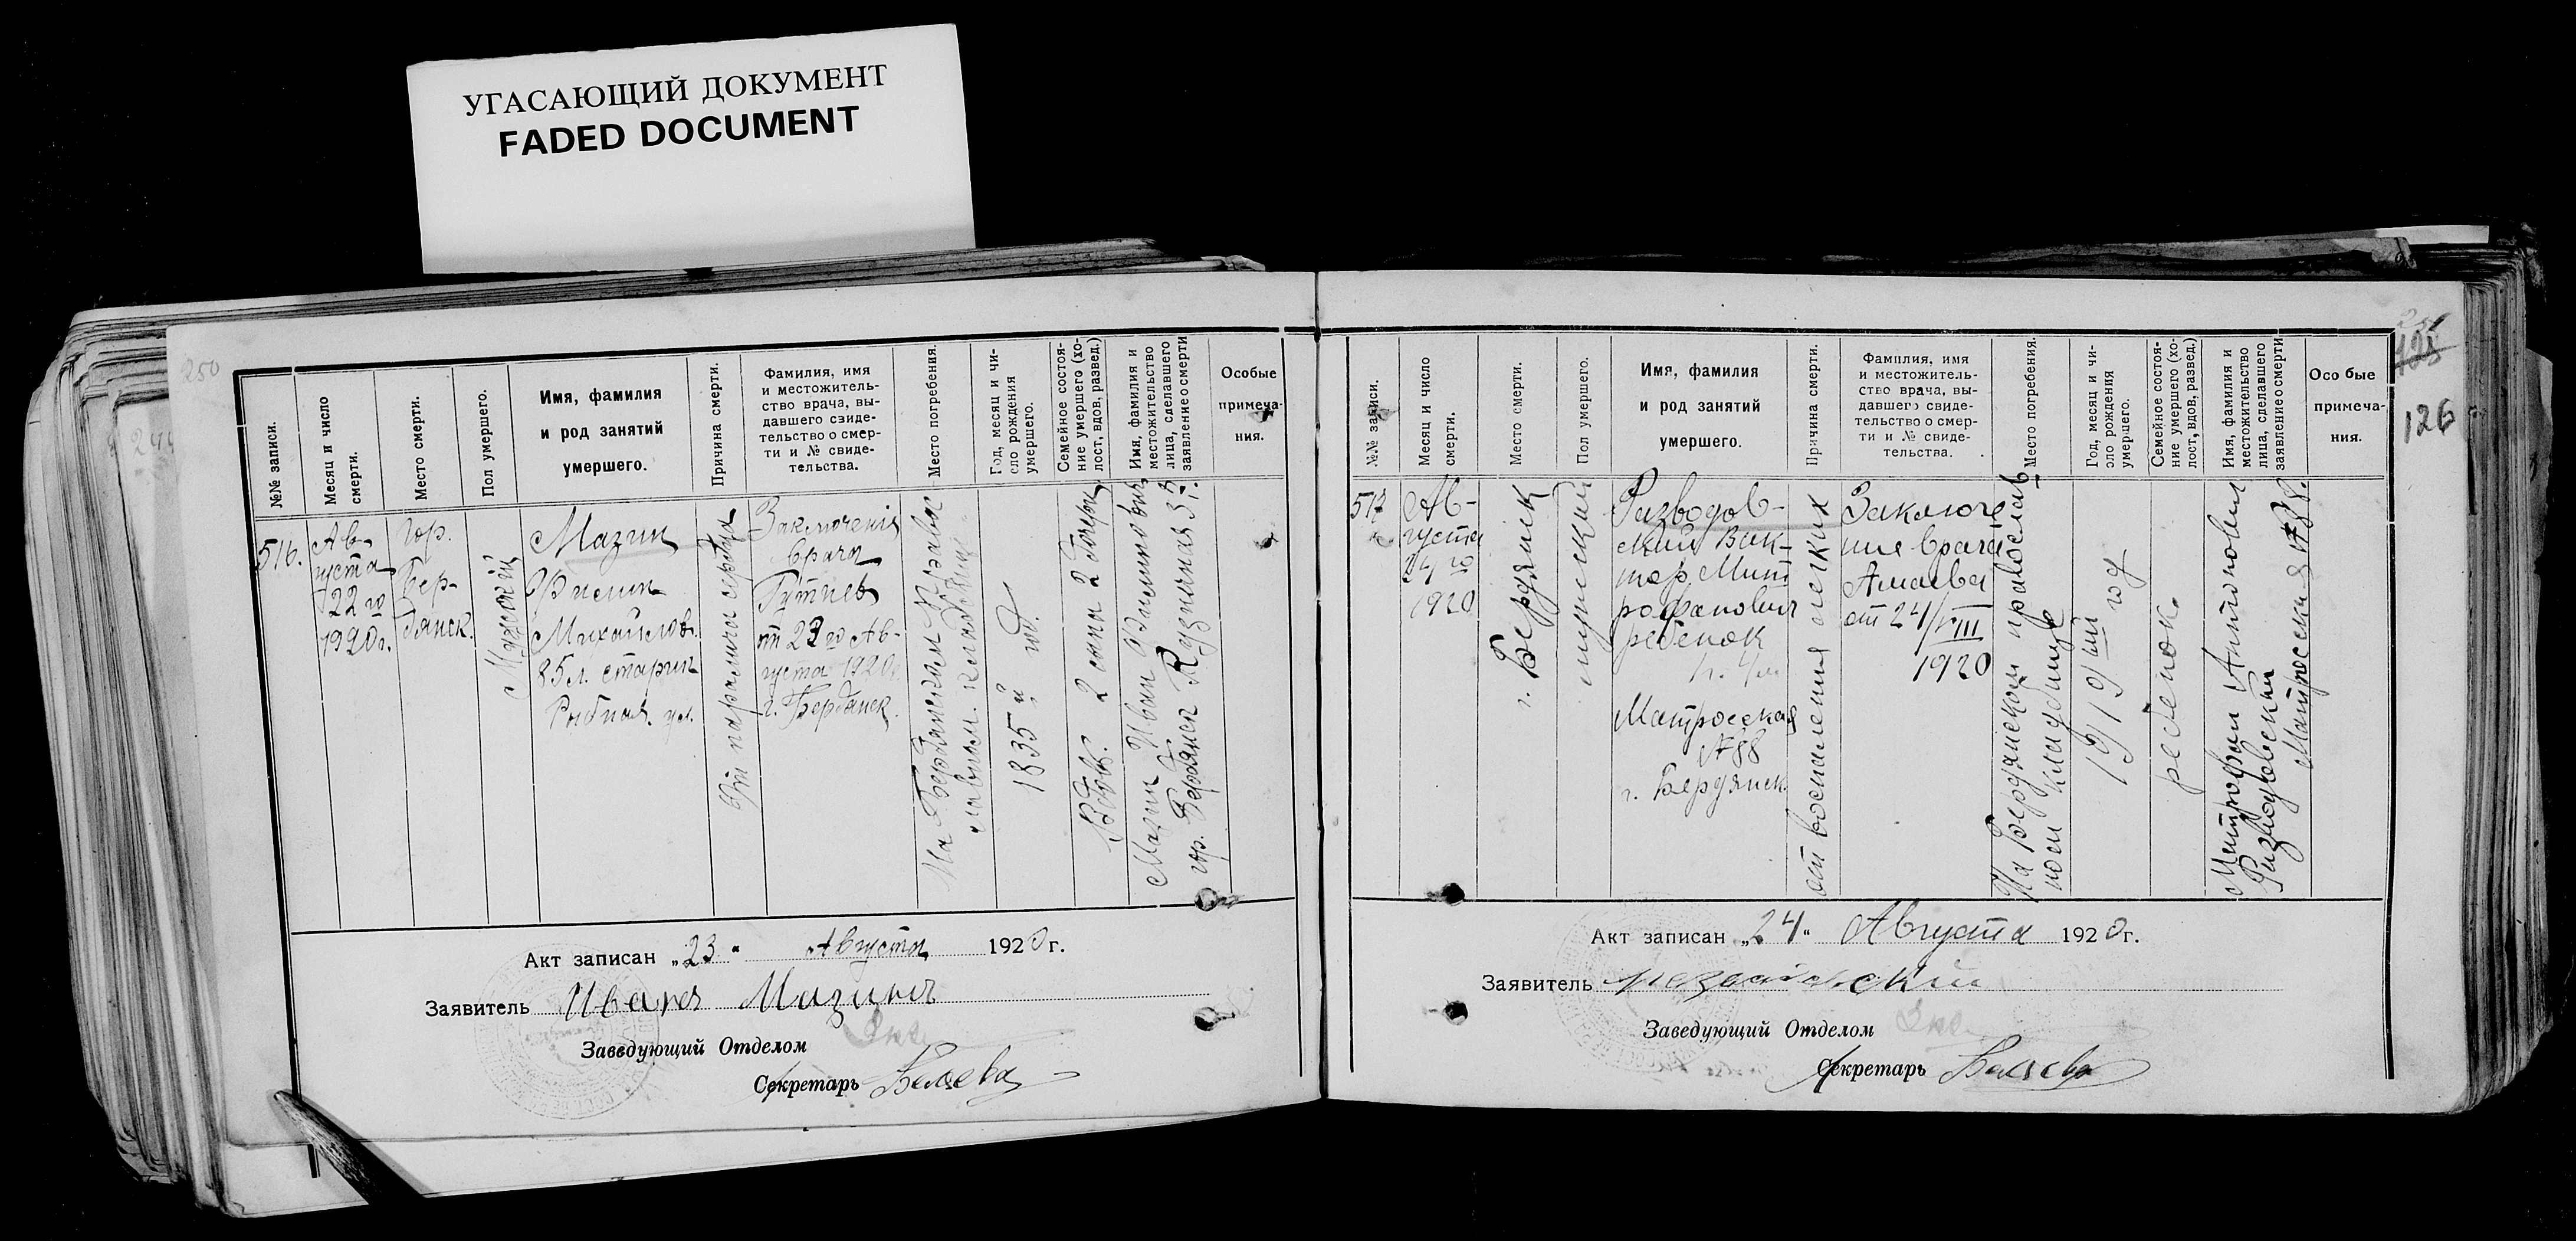 УГАСАЮЩИЙ ДОКУМЕНТ
FADED DOCUMENT
250
№№ записи.
Месяц и число
смерти.
Место смерти.
Пол умершего.
Имя, фамилия
и род занятий
умершего.
Причина смерти.
Фамилия, имя
и местожитель-
ство врача, вы-
давшего свиде-
тельство о смер-
ти и № свиде-
тельства.
Место погребения.
Год, месяц и чи-
сло рождения
умершего.
Семейное состоя-
ние умершего (хо-
лост, вдов, развед.)
Имя, фамилия и
местожительство
лица, сделавшего
заявление о смерти
Особые
примеча-
ния.
516.
Ав-
густа
22 го
1920г.
Гор.
Бер-
дянск.
Мужской
Мазин
Филип
Михайлов.
85 л. старик
Рыбная. ул.
От паралича сердца
Заключения
врача
от 23 го Ав-
густа 1920г.
г. Бердянск.
На Бердянском Правос
лавном. кладбище.
1835 й год.
Вдов. 2 сына 2 дочери.
Мазин Иван Филиппович
гор. Бердянск
Акт записан „23“ Августа 1920 г.
Заявитель Иванъ Мазинъ
Заведующий Отделом
Секретарь Беляева
126
№№ записи.
Месяц и число
смерти.
Место смерти.
Пол умершего.
Имя, фамилия
и род занятий
умершего.
Причина смерти.
Фамилия, имя
и местожитель-
ство врача, вы-
давшего свиде-
тельство о смер-
ти и № свиде-
тельства.
Место погребения.
Год, месяц и чи-
сло рождения
умершего.
Семейное состоя-
ние умершего (хо-
лост, вдов, развед.)
Имя, фамилия и
местожительство
лица, сделавшего
заявление о смерти
Особые
примеча-
ния.
517
Ав-
густа
24 го
1920
г. Бердянск
мужской
Разводов-
ский Вик-
тор Мит
рофанович
ребенок
Матросская
№88
г. Бердянск.
от воспаления легких
Заключе
ние врача
от 24/VIII
1920
На Бердянском православ
ном кладбище
1919 ый год
ребенок.
Митрофан Антонович
Разводовский
Матросская №88.
Акт записан „24“ Августа 1920 г.
Заявитель
Заведующий Отделом
Секретарь Беляева